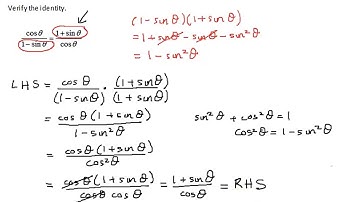 Verify the identity.
cosθ/(1−sinθ) = (1+sinθ)/cosθ
(1−sinθ)(1+sinθ)
= 1+sinθ−sinθ−sin²θ
= 1−sin²θ
LHS = cosθ/(1−sinθ) · (1+sinθ)/(1+sinθ)
= cosθ(1+sinθ)/(1−sin²θ)
sin²θ + cos²θ = 1
cos²θ = 1−sin²θ
= cosθ(1+sinθ)/cos²θ
= cosθ(1+sinθ)/(cosθ cosθ) = (1+sinθ)/cosθ = RHS